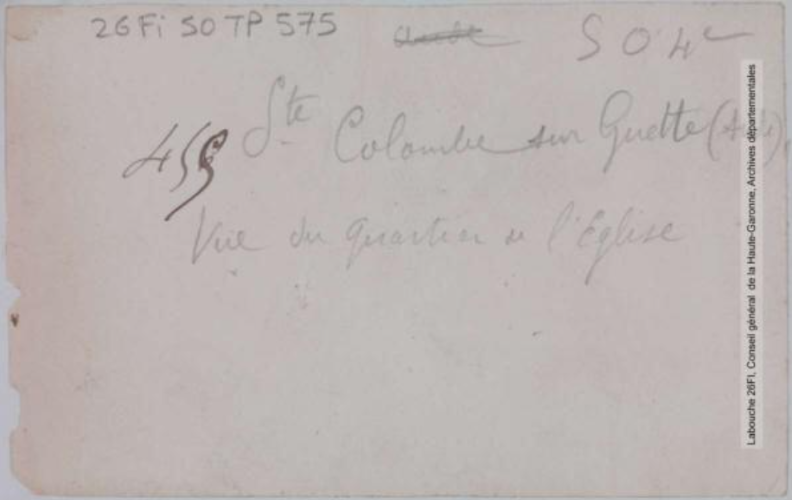 26 Fi SO TP 575
S O 4e
Ste Colombe sur Guette (Aude)
459
Vue du Quartier de l'Eglise
Labouche 26FI, Conseil général de la Haute-Garonne, Archives départementales